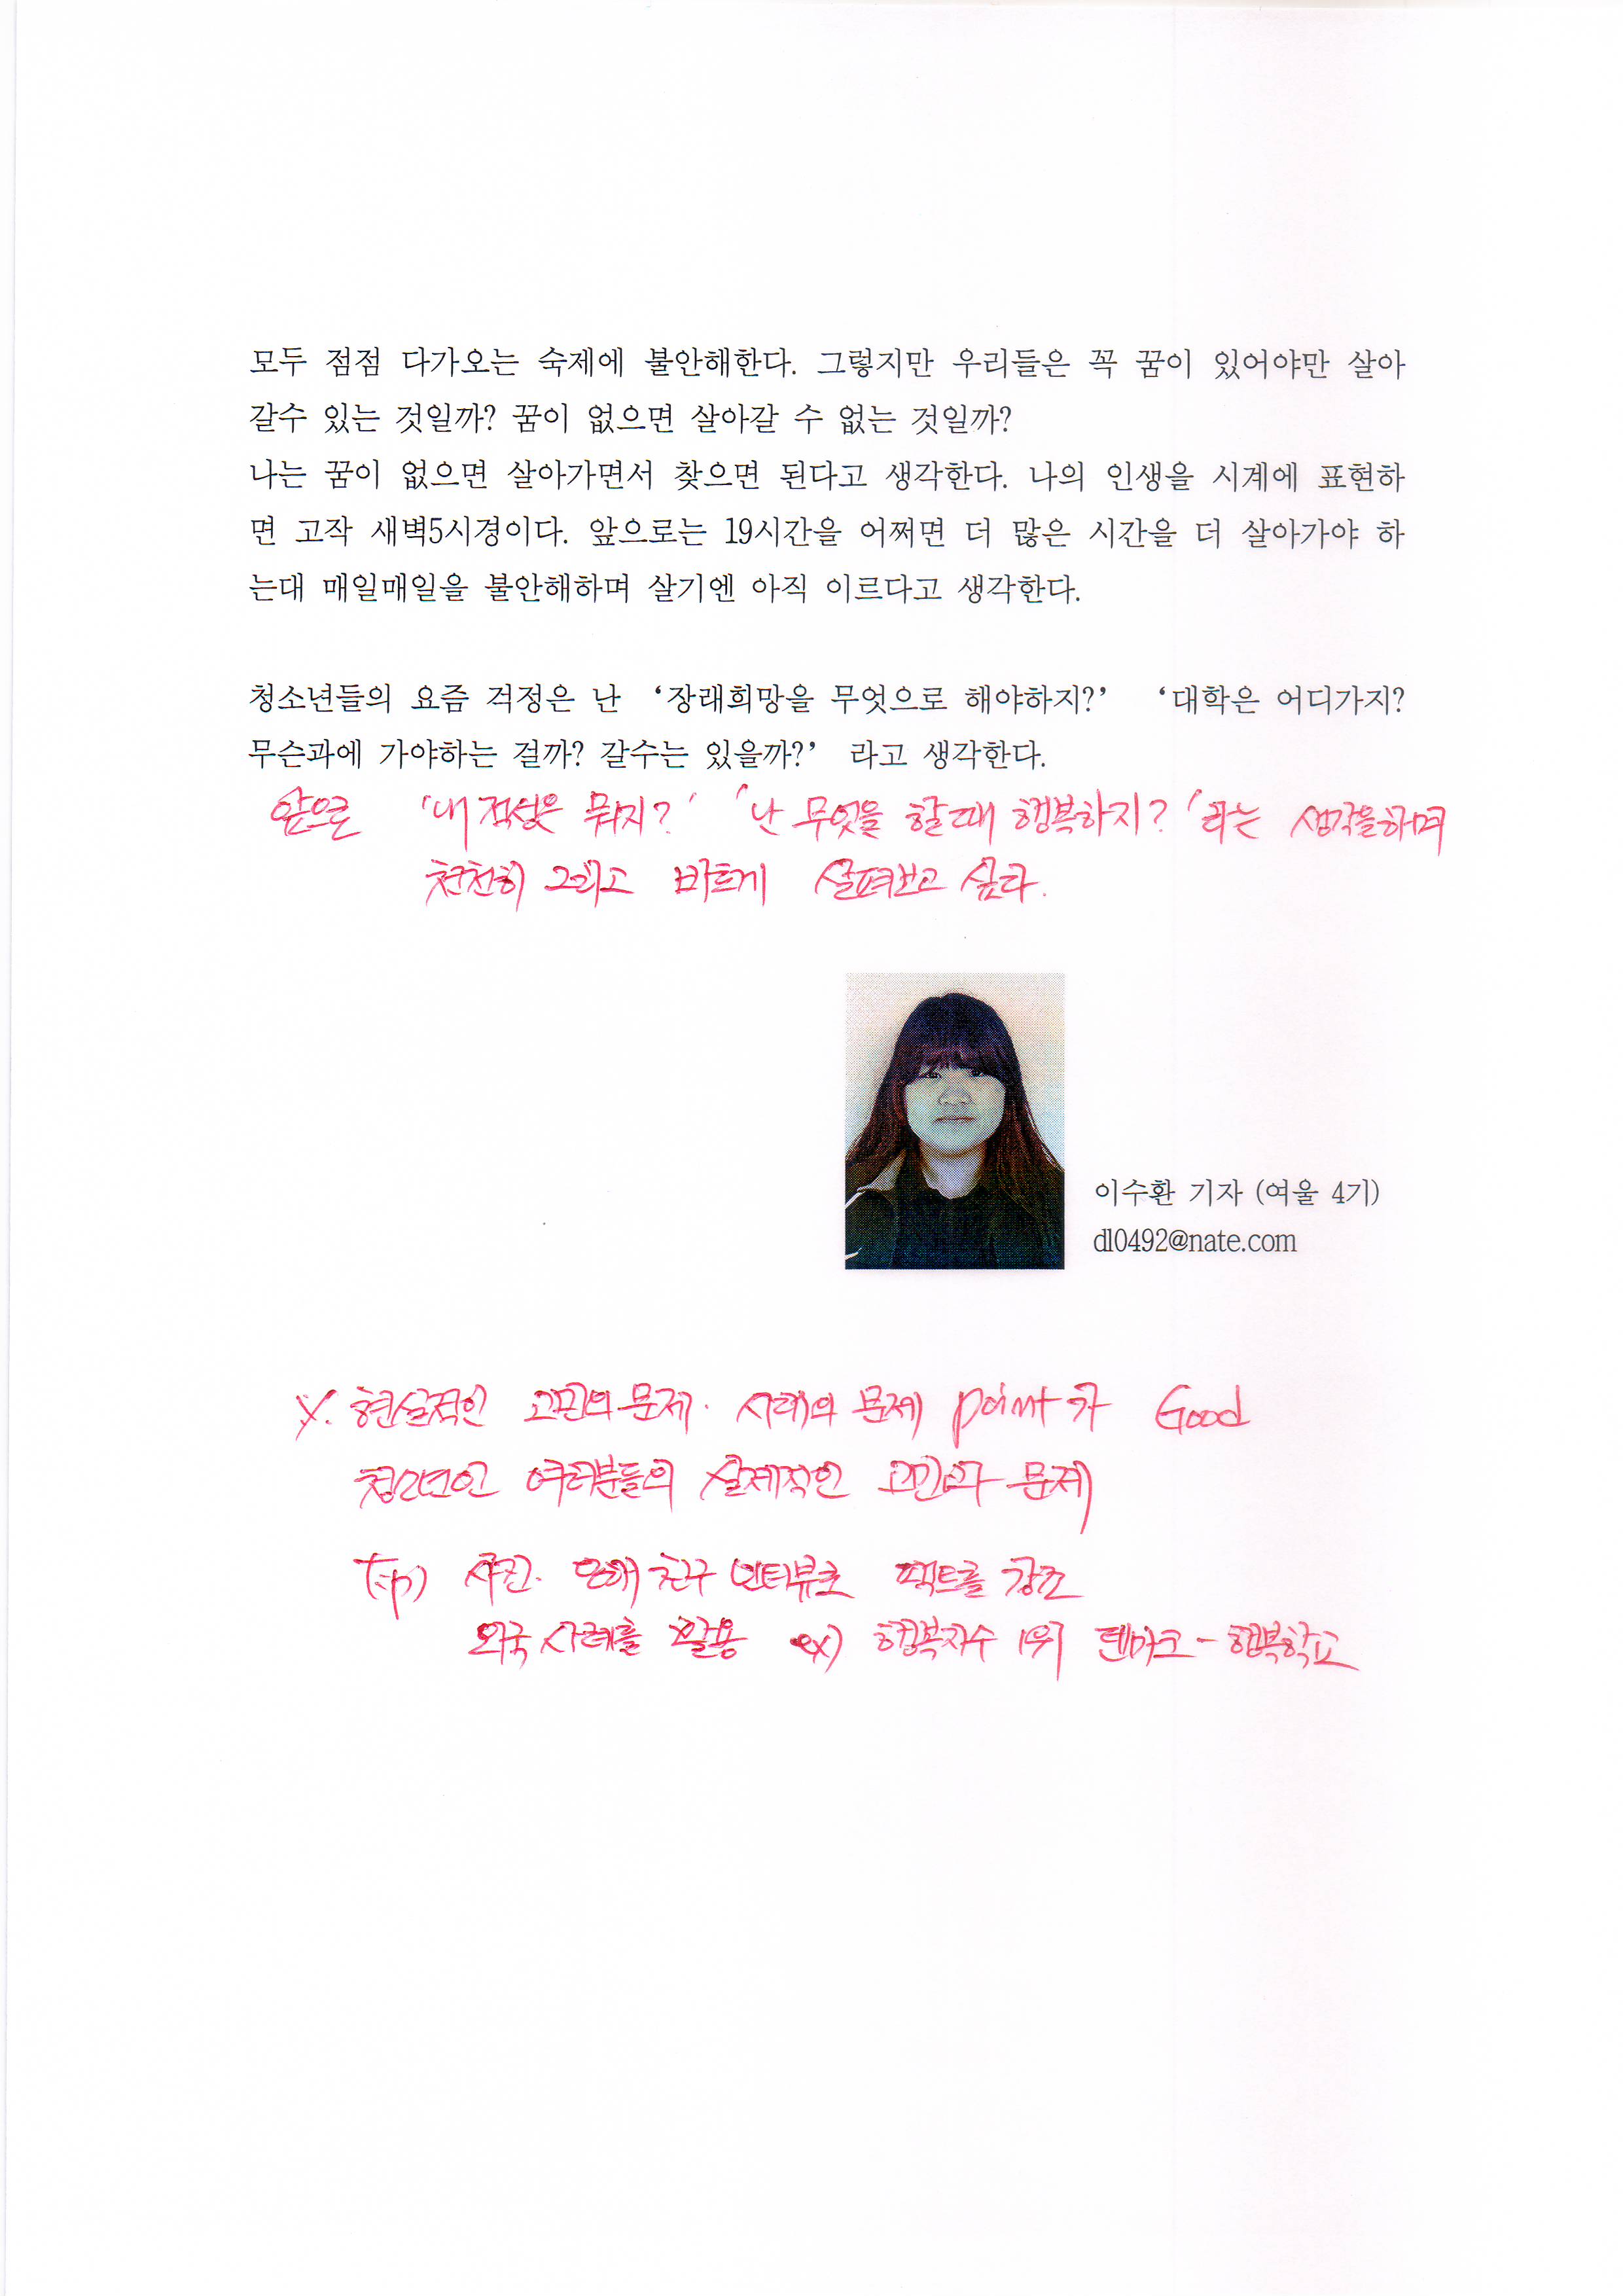 모두 점점 다가오는 숙제에 불안해한다. 그렇지만 우리들은 꼭 꿈이 있어야만 살아
갈수 있는 것일까? 꿈이 없으면 살아갈 수 없는 것일까?
나는 꿈이 없으면 살아가면서 찾으면 된다고 생각한다. 나의 인생을 시계에 표현하
면 고작 새벽5시경이다. 앞으로는 19시간을 어쩌면 더 많은 시간을 더 살아가야 하
는대 매일매일을 불안해하며 살기엔 아직 이르다고 생각한다.
청소년들의 요즘 걱정은 난 ‘장래희망을 무엇으로 해야하지?’ ‘대학은 어디가지?
무슨과에 가야하는 걸까? 갈수는 있을까?’ 라고 생각한다.
앞으론 '내 적성은 뭐지?' '난 무엇을 할때 행복하지?' 라는 생각을하며
천천히 그리고 바르게 살펴보고 싶다.
이수환 기자 (여울 4기)
dl0492@nate.com
현실적인 고민의 문제. 사례의 문제 point가 Good
청소년인 여러분들의 실제적인 고민과 문제
Tip) 사진. 친구 인터뷰로 팩트를 강조
외국 사례를 활용 ex) 행복지수 1위 덴마크 - 행복학교